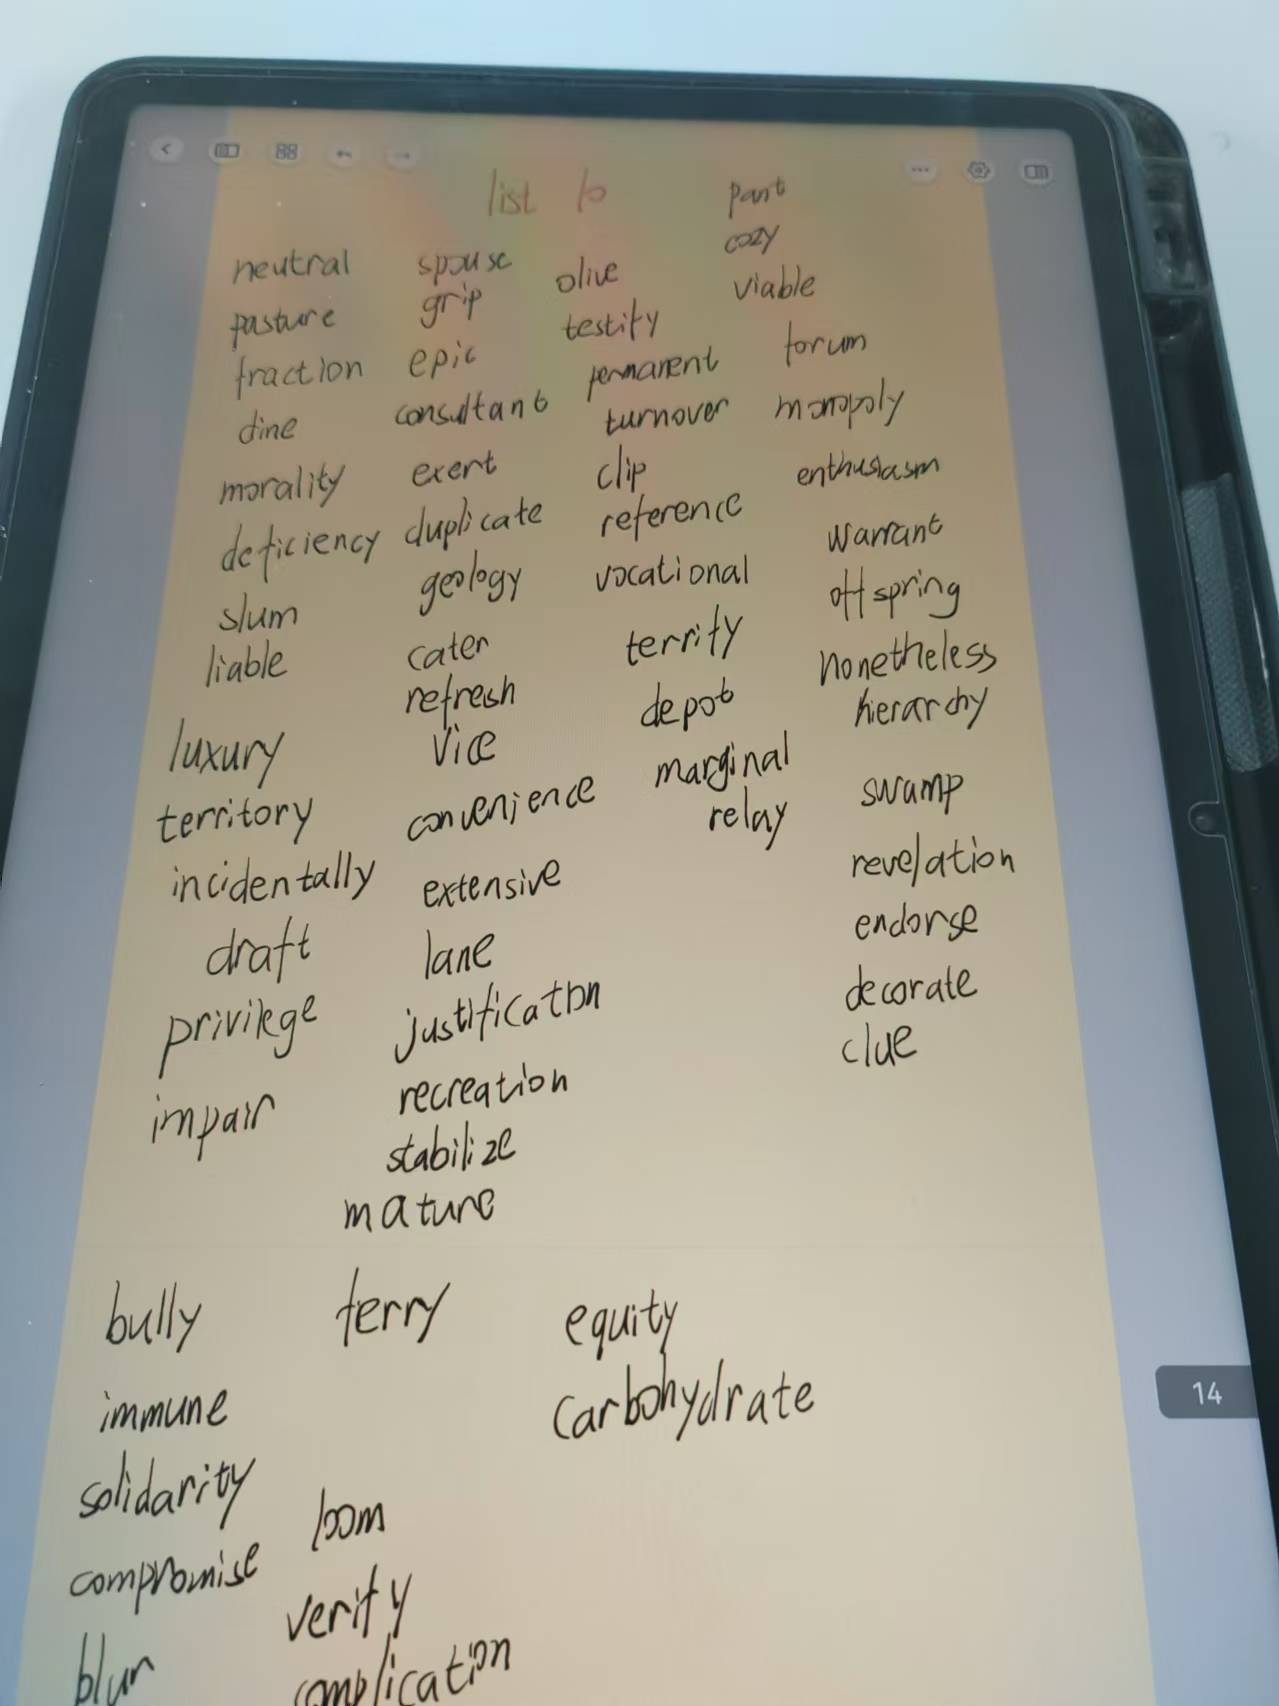 list 10
neutral
pasture
fraction
dine
morality
deficiency
slum
liable
luxury
territory
incidentally
draft
privilege
impair
spouse
grip
epic
consultant
exert
duplicate
geology
cater
refresh
vice
convenience
extensive
lane
justification
recreation
stabilize
mature
olive
testify
permanent
turnover
clip
reference
vocational
terrify
depot
marginal
relay
cozy
viable
forum
monopoly
enthusiasm
warrant
offspring
nonetheless
hierarchy
swamp
revelation
endorse
decorate
clue
bully
immune
solidarity
compromise
blur
ferry
loom
verify
complication
equity
carbohydrate
14